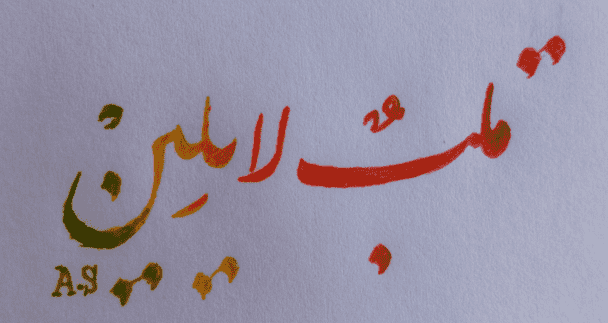 قلبٌ لا يلينْ
A.S